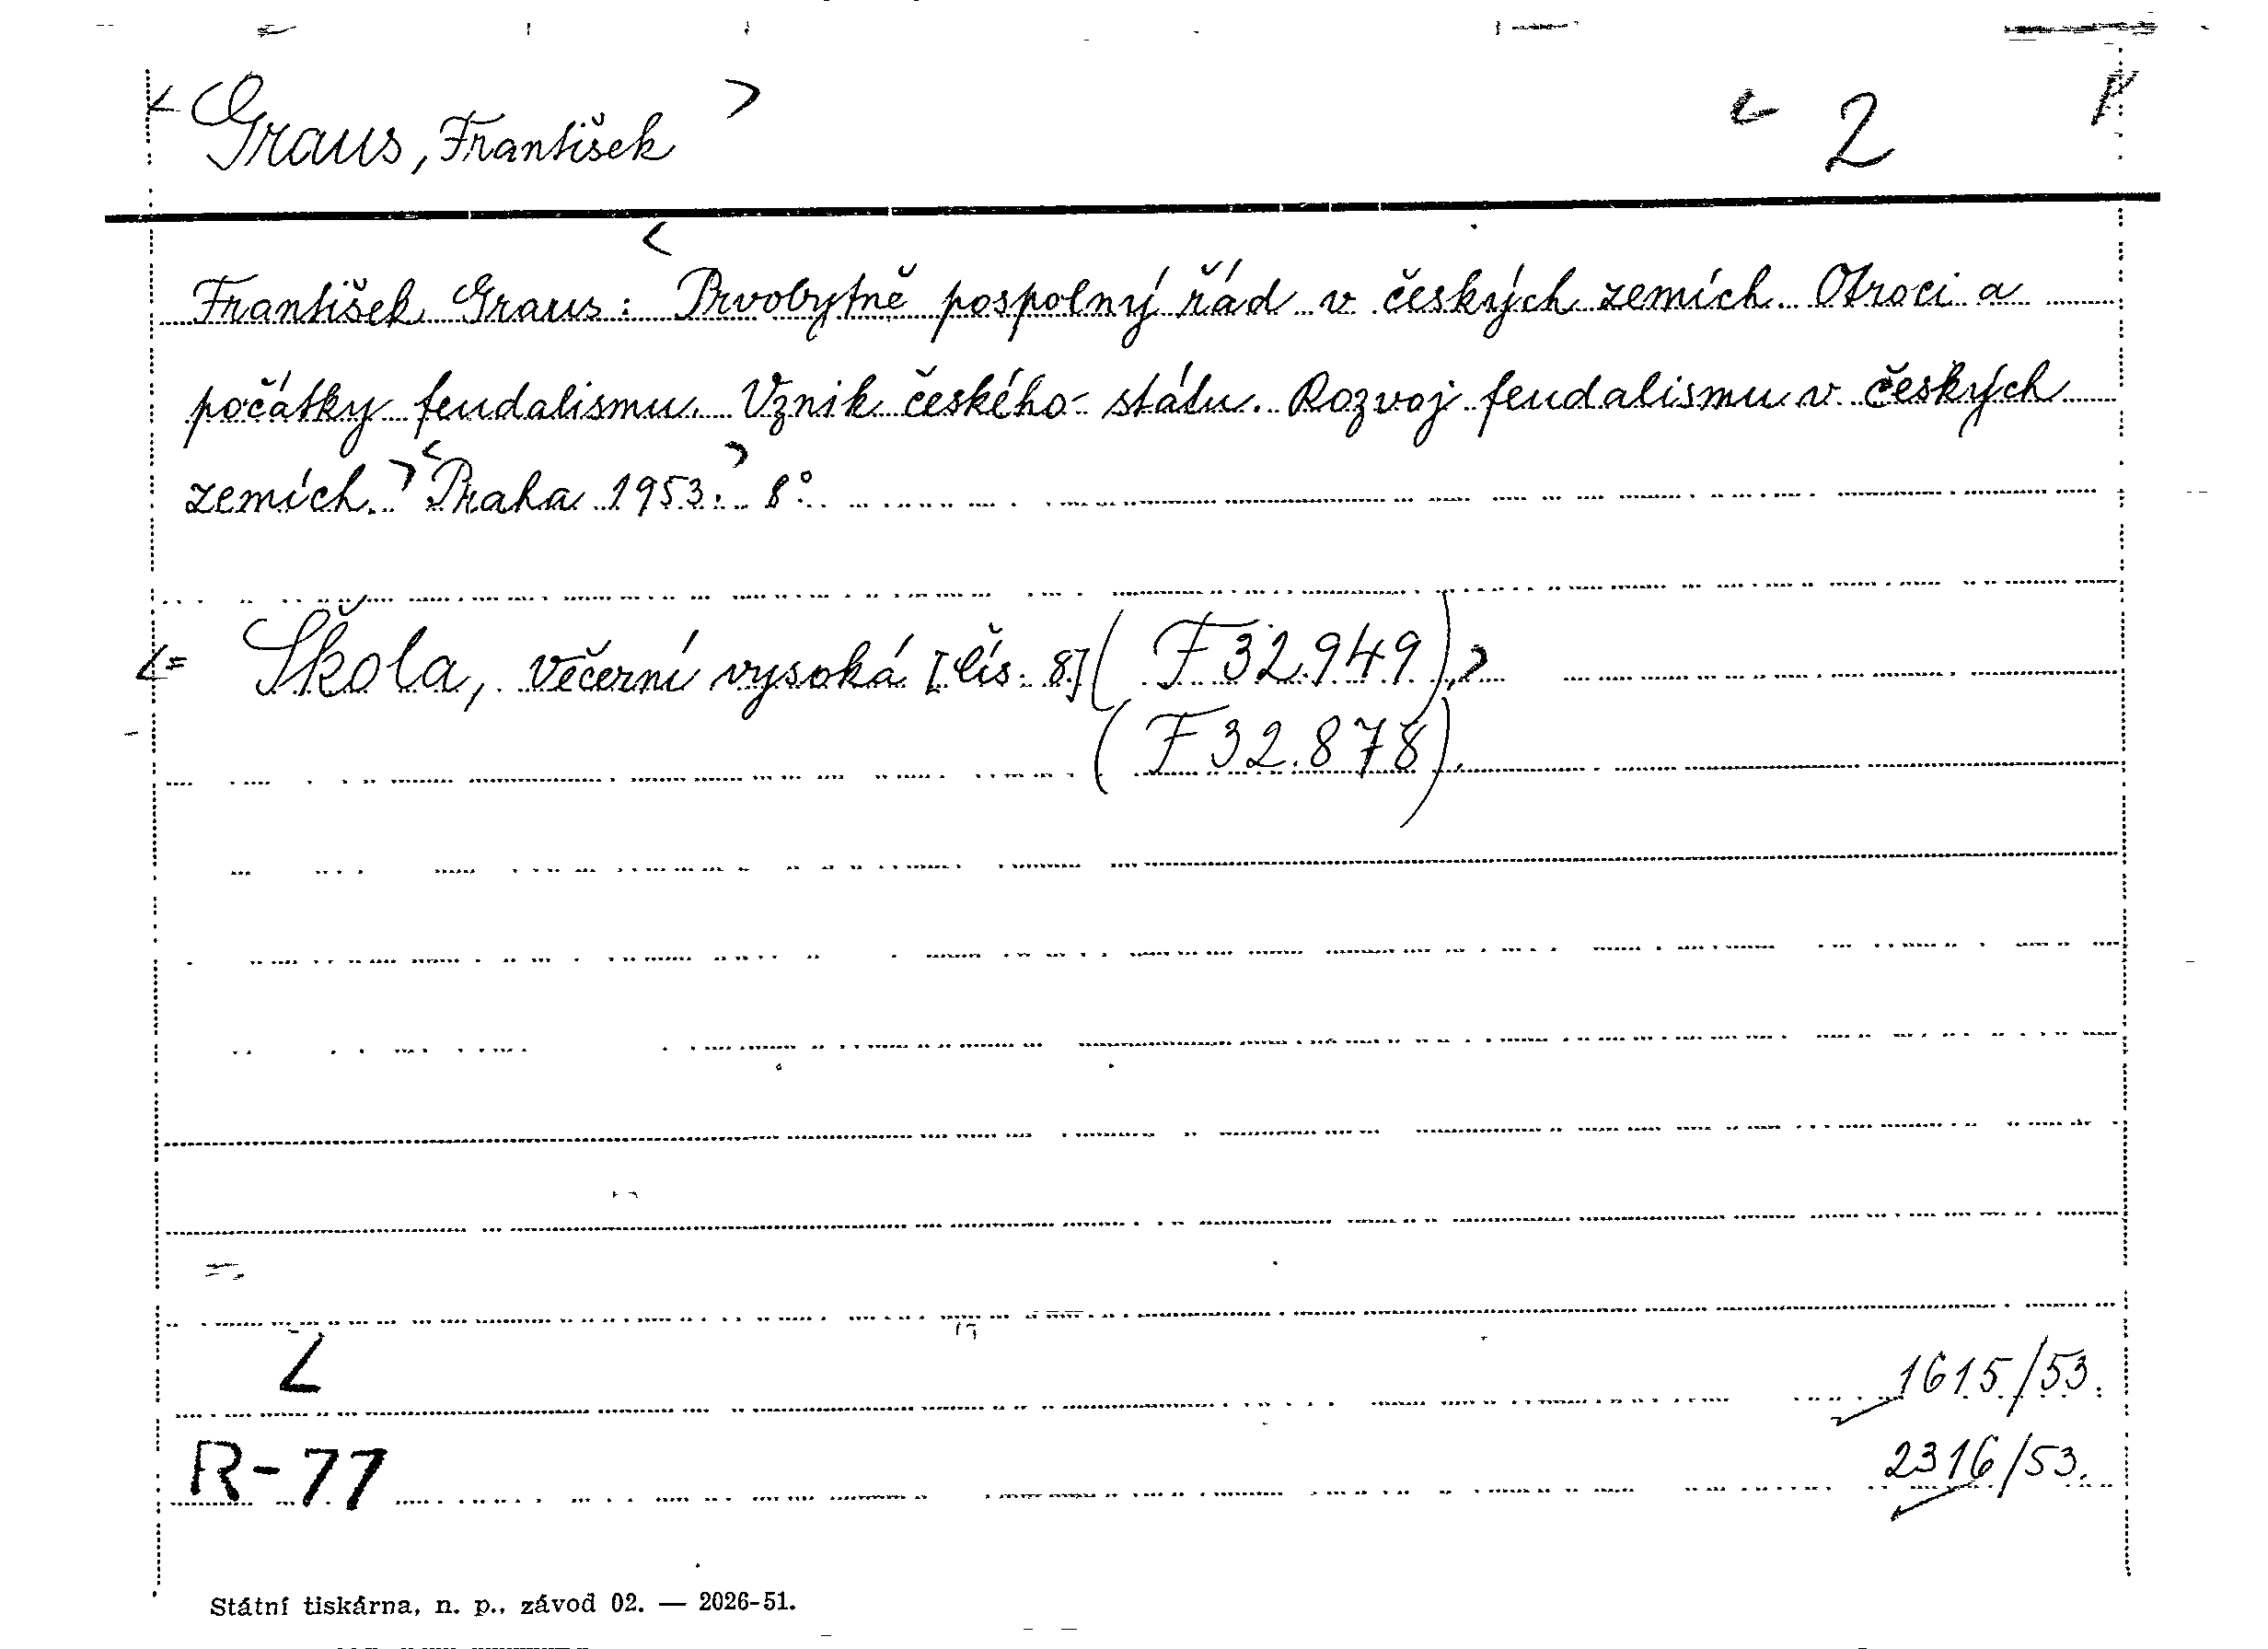 < Graus, František > < 2
< František Graus: Prvobytně pospolný řád v českých zemích. Otroci a
počátky feudalismu. Vznik českého státu. Rozvoj feudalismu v českých
zemích. > < Praha 1953. > 8°.
<= Škola, večerní vysoká [čís. 8] (F 32.949), >
(F 32.878).
Z
1615/53.
R-77
2316/53.
Státní tiskárna, n. p., závod 02. — 2026-51.